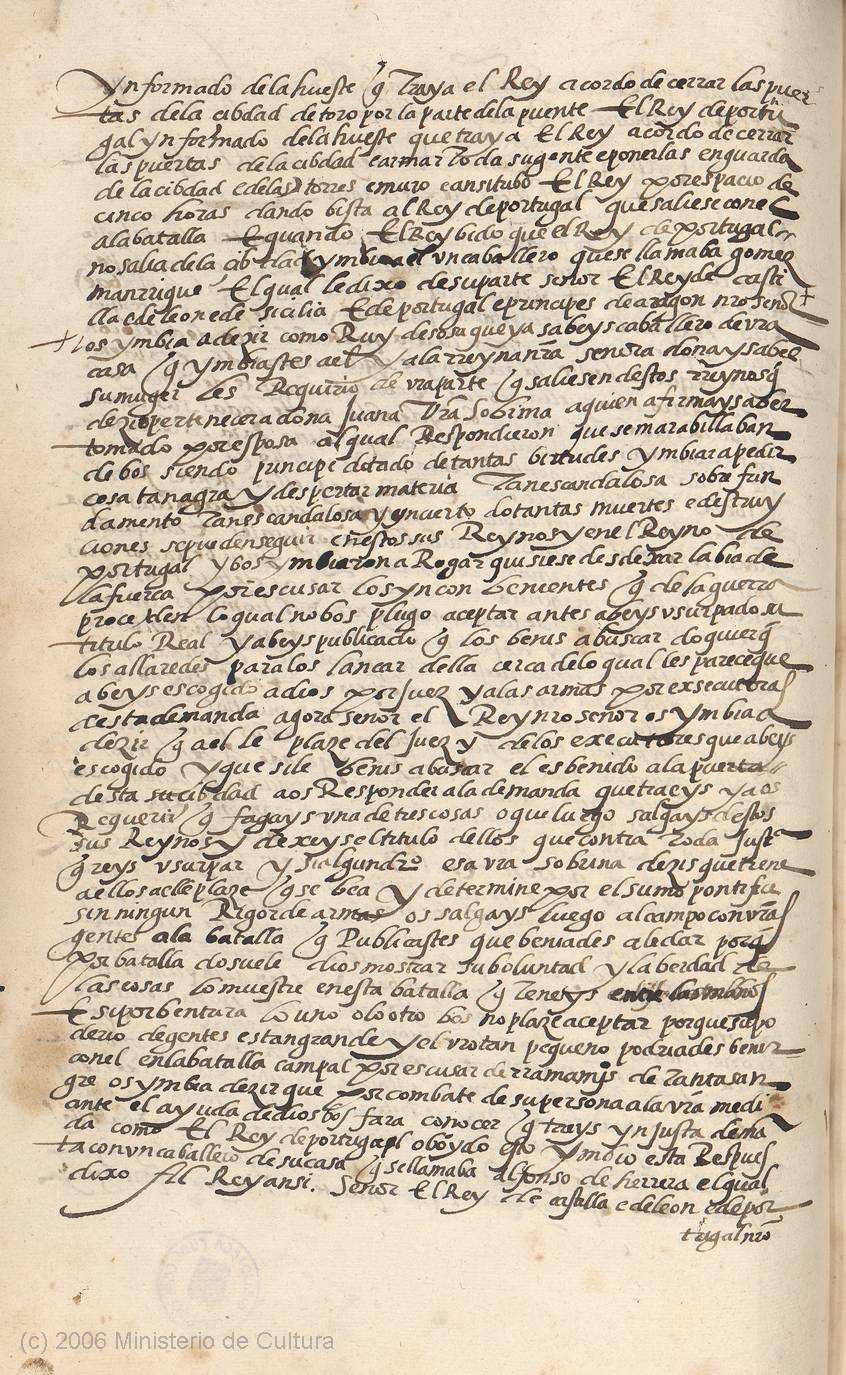 ynformado de la hueste q̃ traya el Rey acordo de cerrar las puer
tas de la cibdad de toro por la parte de la puente El Rey de portu
gal ynformado de la hueste que traya El Rey acordo de cerrar
las puertas de la cibdad e armar toda su gente e ponerlas en guarda
de la cibdad e de las torres e muro e ansi tubo El Rey por espacio de
cinco horas dando bista al Rey de portugal que saliese con el
a la batalla E quando El Rey bido que el Rey de portugal
no salia de la cibdad ymbio a el un caballero que se llamaba gomez
manrrique El qual le dixo de su parte señor El Rey de casti
lla e de leon e de sicilia E de portugal e principes de aragon nr̃o señor
os ymbia a dezir como Ruy de sosa que ya sabeys caballero de vr̃a
casa q̃ ymbiastes a el y a la rreyna nr̃a señora doña ysabel
su muger les Requirio de vr̃a parte q̃ saliesen destos rreynos q̃
dezis pertenecer a doña Juana vr̃a sobrina a quien afirmays aber
tomado por esposa al qual Respondieron que se marabillaban
de bos siendo principe dotado de tantas birtudes ymbiar a pedir
cosa tan agra y despertar materia tan escandalosa sobre fun
damento tan escandalosa y yncierto do tantas muertes e destruy
ciones se pueden seguir en estos sus Reynos y en el Reyno de
portugal y bos ymbiaron a Rogar quisiesedes dexar la bia de
la fuerça por escusar los ynconbenientes q̃ de la guerra
proceden lo qual no bos plugo aceptar antes abeys usurpado su
titulo Real y abeys publicado q̃ los benis a buscar do quier q̃
los allaredes para los lançar della cerca de lo qual les parece que
abeys escogido a dios por Juez y a las armas por exsecutoras
desta demanda agora señor el Rey nr̃o señor os ymbia a
dezir q̃ a el le plaze del Juez y de los executores que abeys
escogido y que si le benis a buscar el es benido a la puerta
desta su cibdad a os Responder a la demanda que traeys y a os
Requerir q̃ fagays una de tres cosas o que luego salgays destos
sus Reynos y dexeys el titulo dellos que contra toda just
q̃reys usurpar y si algun dr̃o esa vr̃a sobrina dezis que tiene
a ellos a el le plaze q̃ se bea y determine por el sumo pontifice
sin ningun Rigor de armas os salgays luego al campo con vr̃as
gentes a la batalla q̃ Publicastes que beniades a le dar porq̃
por batalla do suele dios mostrar su boluntad y la berdad de
las cosas lo muestre en esta batalla q̃ teneys entre las manos
E si por bentura lo uno o lo otro bos no plaze aceptar porque su po
derio de gentes es tan grande y el vr̃o tan pequeno podriades benir
con el en la batalla campal por escusar derramamiº de tanta san
gre os ymbia dezir que por combate de su persona a la vr̃a medi
ante el ayuda de dios bos fara conocer q̃ trays ynjusta dema
da como El Rey de portugal obo oydo esto ymbio esta Respues
ta con un caballero de su casa q̃ se llamaba alfonso de herrera el qual
dixo Al Rey ansi. Señor El Rey de castilla e de leon e de por
tugal nr̃o
(c) 2006 Ministerio de Cultura